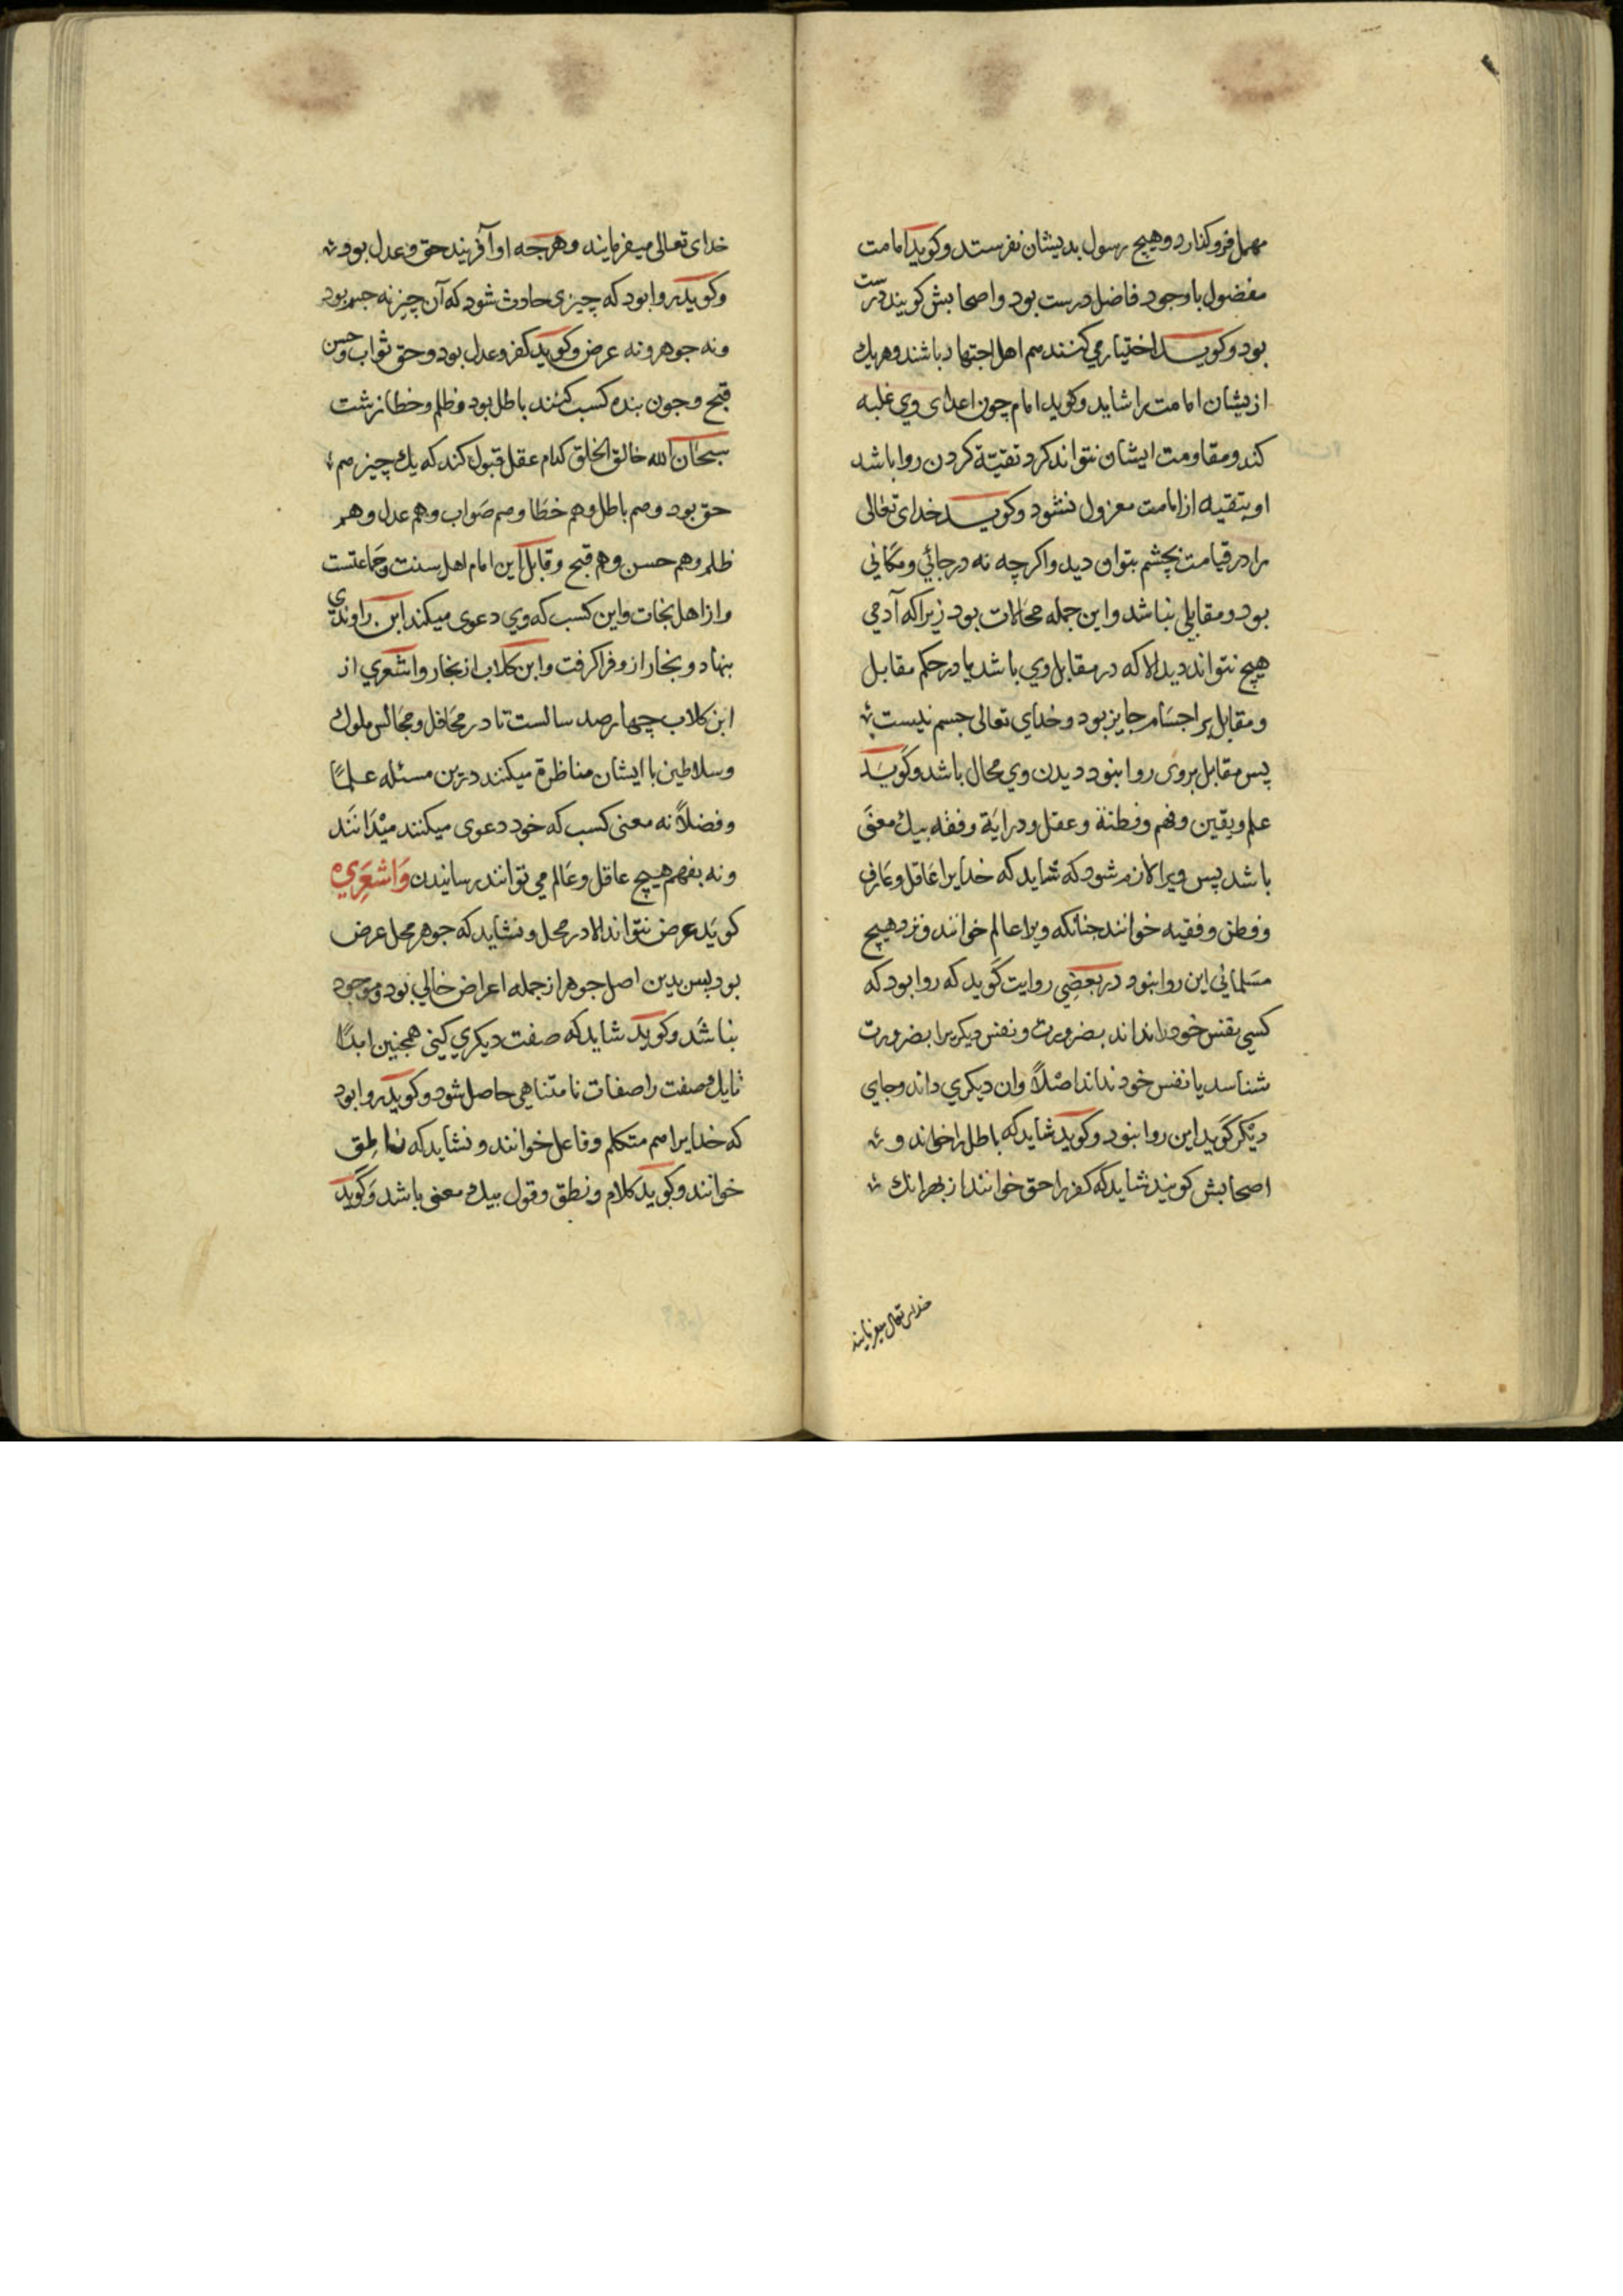 مهمل فرو کذارد و هیچ رسول بدیشان نفرستد و کوید امامت
مفضول با وجود فاضل درست بود و اصحابش کویند درست
بود و کوید اختیار می کنند هم اهل اجتهاد باشند و هر یک
ازیشان امامت را شاید و کوید امام چون اعدای وی غلبه
کند و مقاومت ایشان نتواند کرد تقیّة کردن روا باشد
او بتقیه از امامت معزول نشود و کوید خدای تعالی
را در قیامت بچشم بتوان دید و اکرچه نه در جائی و مکانی
بود و مقابلی نباشد و این جمله محالات بود زیرا که آدمی
هیچ نتواند دید الا که در مقابل وی باشد یا در حکم مقابل
و مقابل بر اجسام جایز بود و خدای تعالی جسم نیست
پس مقابل بر وی روا نبود دیدن وی محال باشد و کوید
علم و یقین و فهم و فطنة و عقل و درایة و فقه بیک معنی
باشد پس ویرا لازم شود که شاید که خدایرا عاقل و عارف
و فطن و فقیه خوانند جنانکه ویرا عالم خوانند و نزد هیچ
مسلمانی این روا نبود در بعضی روایت کوید که روا بود که
کسی نفس خود را نداند بضرورت و نفس دیکریرا بضرورت
شناسد یا نفس خود نداند اصلاً و ان دیکری داند و جای
دیکر کوید این روا نبود و کوید شاید که باطل را خواند و
اصحابش کویند شاید که کفر را حق خوانند از بهر انک
خدای تعالی میفرمایند
خدای تعالی میفرمایند و هرجه او آفریند حق و عدل بود
و کوید روا بود که چیزی حادث شود که آن چیز نه جسم بود
و نه جوهر و نه عرض و کوید کفر و عدل بود و حق ثواب و حسن
قبح و جون بنده کسب کند باطل بود و ظلم و خطا زشت
سبحان الله خالق الخلق کدام عقل قبول کند که یک چیز هم
حق بود و هم باطل و هم خطا و هم صواب و هم عدل و هم
ظلم و هم حسن و هم قبح و قابل این امام اهل سنت و جماعتست
و از اهل نجات و این کسب که وی دعوی میکند ابن راوندی
بنهاد و نجار ازو فرا کرفت و ابن کلاب از نجار و اشعری از
ابن کلاب چهارصد سالست تا در محافل و مجالس ملوک
و سلاطین با ایشان مناظرة میکنند درین مسئله علماً
و فضلاً نه معنی کسب که خود دعوی میکنند میدانند
و نه بفهم هیچ عاقل و عالم می توانند رسانیدن و اشعری
کوید عرض نتواند الا در محل و نشاید که جوهر محل عرض
بود پس بدین اصل جوهر از جمله اعراض خالی بود و موجود
نباشد و کوید شاید که صفت دیکری کنی همجنین ابداً
تا یک صفت را صفات نامتناهی حاصل شود و کوید روا بود
که خدایرا هم متکلم و فاعل خوانند و نشاید که ناطق
خوانند و کوید کلام و نطق و قول بیک معنی باشد و کوید